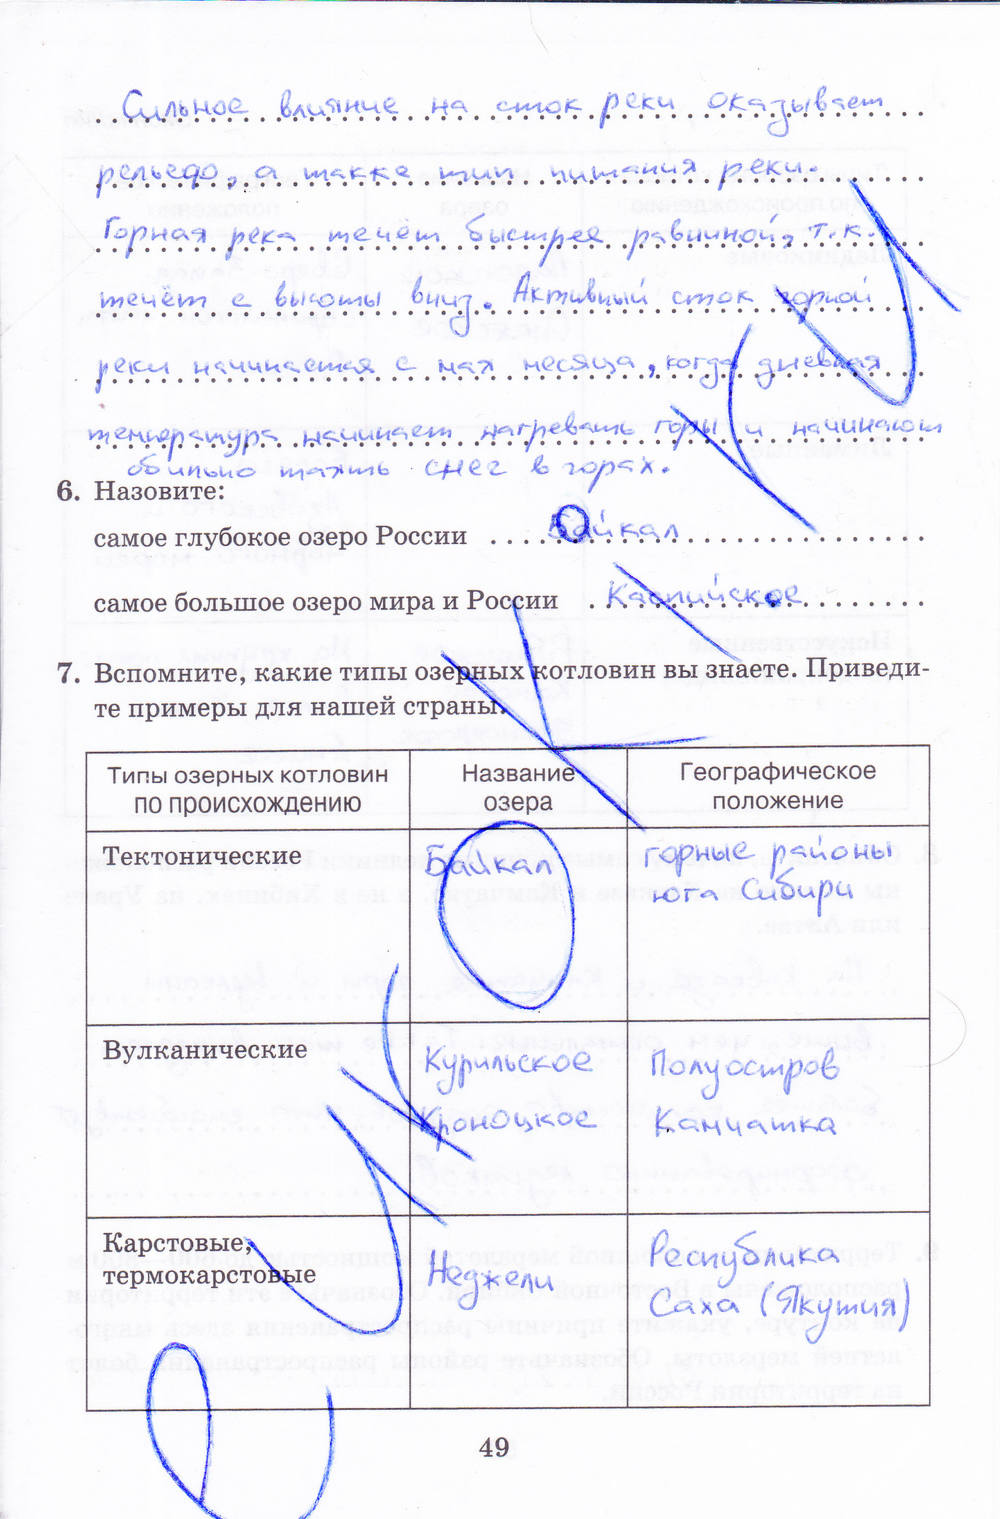 Сильное влияние на сток реки оказывает
рельефо, а также тип питания реки.
Горная река течёт быстрее равнинной, т.к.
течёт с высоты вниз. Активный сток горной
реки начинается с мая месяца, когда дневная
температура начинает нагревать горы и начинают
обильно таять снег в горах.
6. Назовите:
самое глубокое озеро России Байкал
самое большое озеро мира и России Каспийское
7. Вспомните, какие типы озерных котловин вы знаете. Приведи-
те примеры для нашей страны.
Типы озерных котловин
по происхождению
Название
озера
Географическое
положение
Тектонические
Байкал
горные районы
юга Сибири
Вулканические
Курильское
Кроноцкое
Полуостров
Камчатка
Карстовые,
термокарстовые
Неджели
Республика
Саха (Якутия)
49